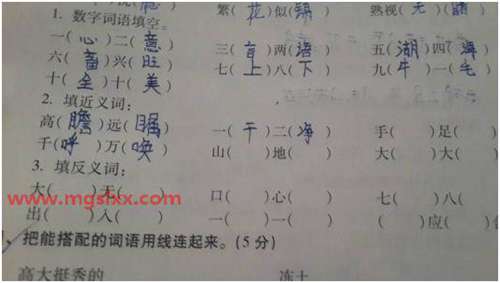 繁(花)似(锦) 熟视(无)(睹)
1. 数字词语填空。
一(心)二(意) 三(言)两(语) 五(湖)四(海)
六(畜)兴(旺) 七(上)八(下) 九(牛)一(毛)
十(全)十(美)
2. 填近义词:
高(瞻)远(瞩) 一(干)二(净) 手( )足( )
千(呼)万(唤) 山( )地( ) 大( )大( )
3. 填反义词:
大( )无( ) 口( )心( ) 七( )八(
www.mgslxx.com
出( )入( ) 一( )一( ) ( )应(
把能搭配的词语用线连起来。(5分)
高大挺秀的 冻土